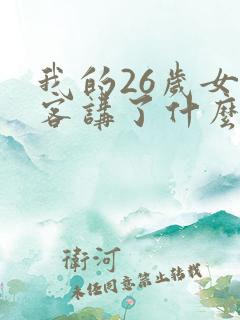 我的26歲女
客講了什麼
衛河
未经同意禁止转载